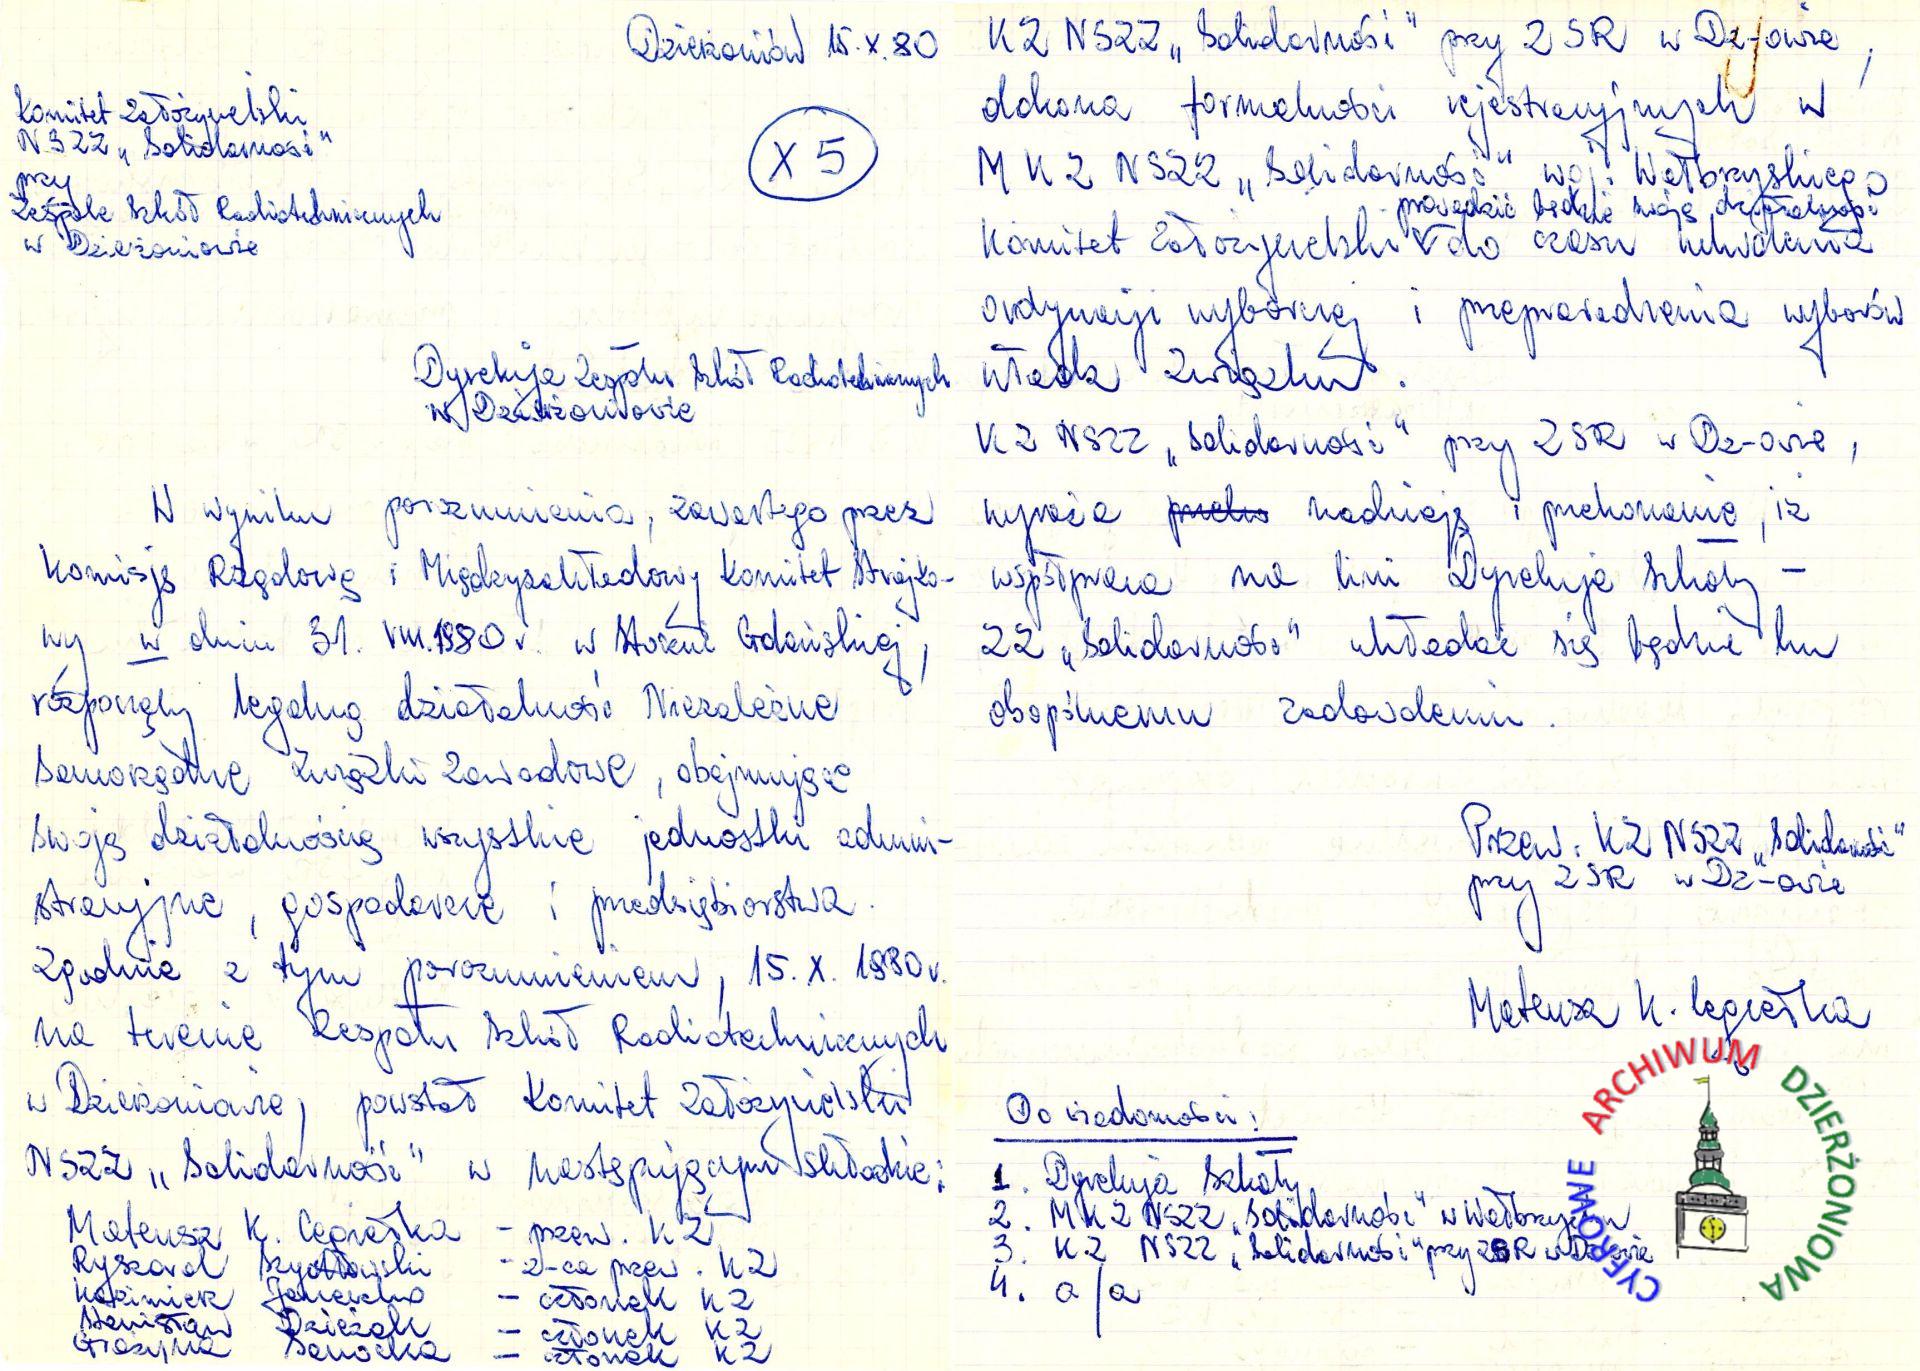 Dzierżoniów 15.X.80
Komitet Założycielski
NSZZ „Solidarność"
przy
Zespole Szkół Radiotechnicznych
w Dzierżoniowie
X 5
Dyrekcja Zespołu Szkół Radiotechnicznych
w Dzierżoniowie
W wyniku porozumienia, zawartego przez
Komisję Rządową i Międzyzakładowy Komitet Strajko-
wy w dniu 31. VIII.1980 r. w Stoczni Gdańskiej,
rozpoczęły legalną działalność Niezależne
Samorządne Związki Zawodowe, obejmując
swoją działalnością wszystkie jednostki admini-
stracyjne, gospodarcze i przedsiębiorstwa.
Zgodnie z tym porozumieniem, 15. X. 1980 r.
na terenie Zespołu Szkół Radiotechnicznych
w Dzierżoniowie, powstał Komitet Założycielski
NSZZ „Solidarność" w następującym składzie:
Mateusz K. Cegiełka - przew. KZ
Ryszard - z-ca przew. KZ
Kazimierz - członek KZ
Stanisław - członek KZ
Grażyna Sanocka - członek KZ
KZ NSZZ „Solidarność" przy ZSR w Dz-owie,
dokona formalności rejestracyjnych w
MKZ NSZZ „Solidarność" woj. Wałbrzyskiego
prowadzić będzie swoją działalność
Komitet Założycielski do czasu uchwalenia
ordynacji wyborczej i przeprowadzenia wyborów
władz Związku.
KZ NSZZ „Solidarność" przy ZSR w Dz-owie,
wyraża nadzieję i przekonanie, iż
współpraca na linii Dyrekcja Szkoły -
ZZ „Solidarność" układać się będzie ku
obopólnemu zadowoleniu.
Przew. KZ NSZZ „Solidarność"
przy ZSR w Dz-owie
Mateusz K. Cegiełka
Do wiadomości:
1. Dyrekcja Szkoły
2. MKZ NSZZ „Solidarność" w Wałbrzychu
3. KZ NSZZ „Solidarność" przy ZSR w Dz-owie
4. a/a
CYFROWE ARCHIWUM DZIERŻONIOWA